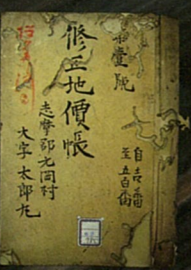 第壹號
自壱番
至五百番
修正地價帳
志摩郡元岡村
大字太郎丸